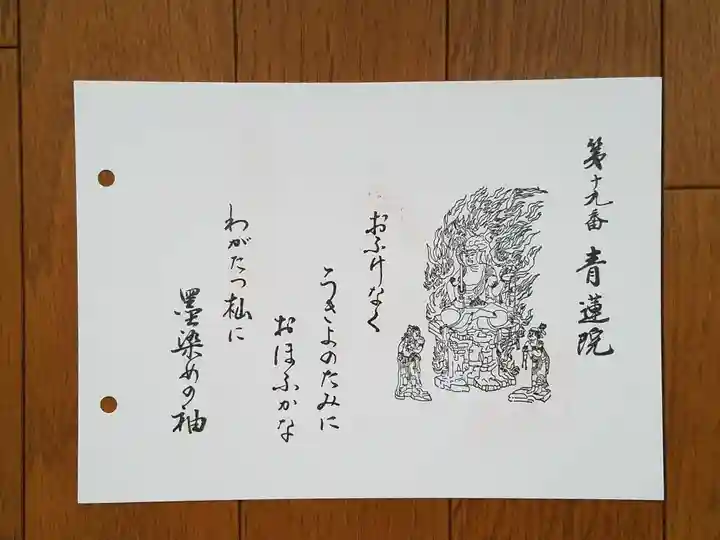 第十九番 青蓮院
おふけなく
うきよのたみに
おほふかな
わがたつ杣に
墨染めの袖